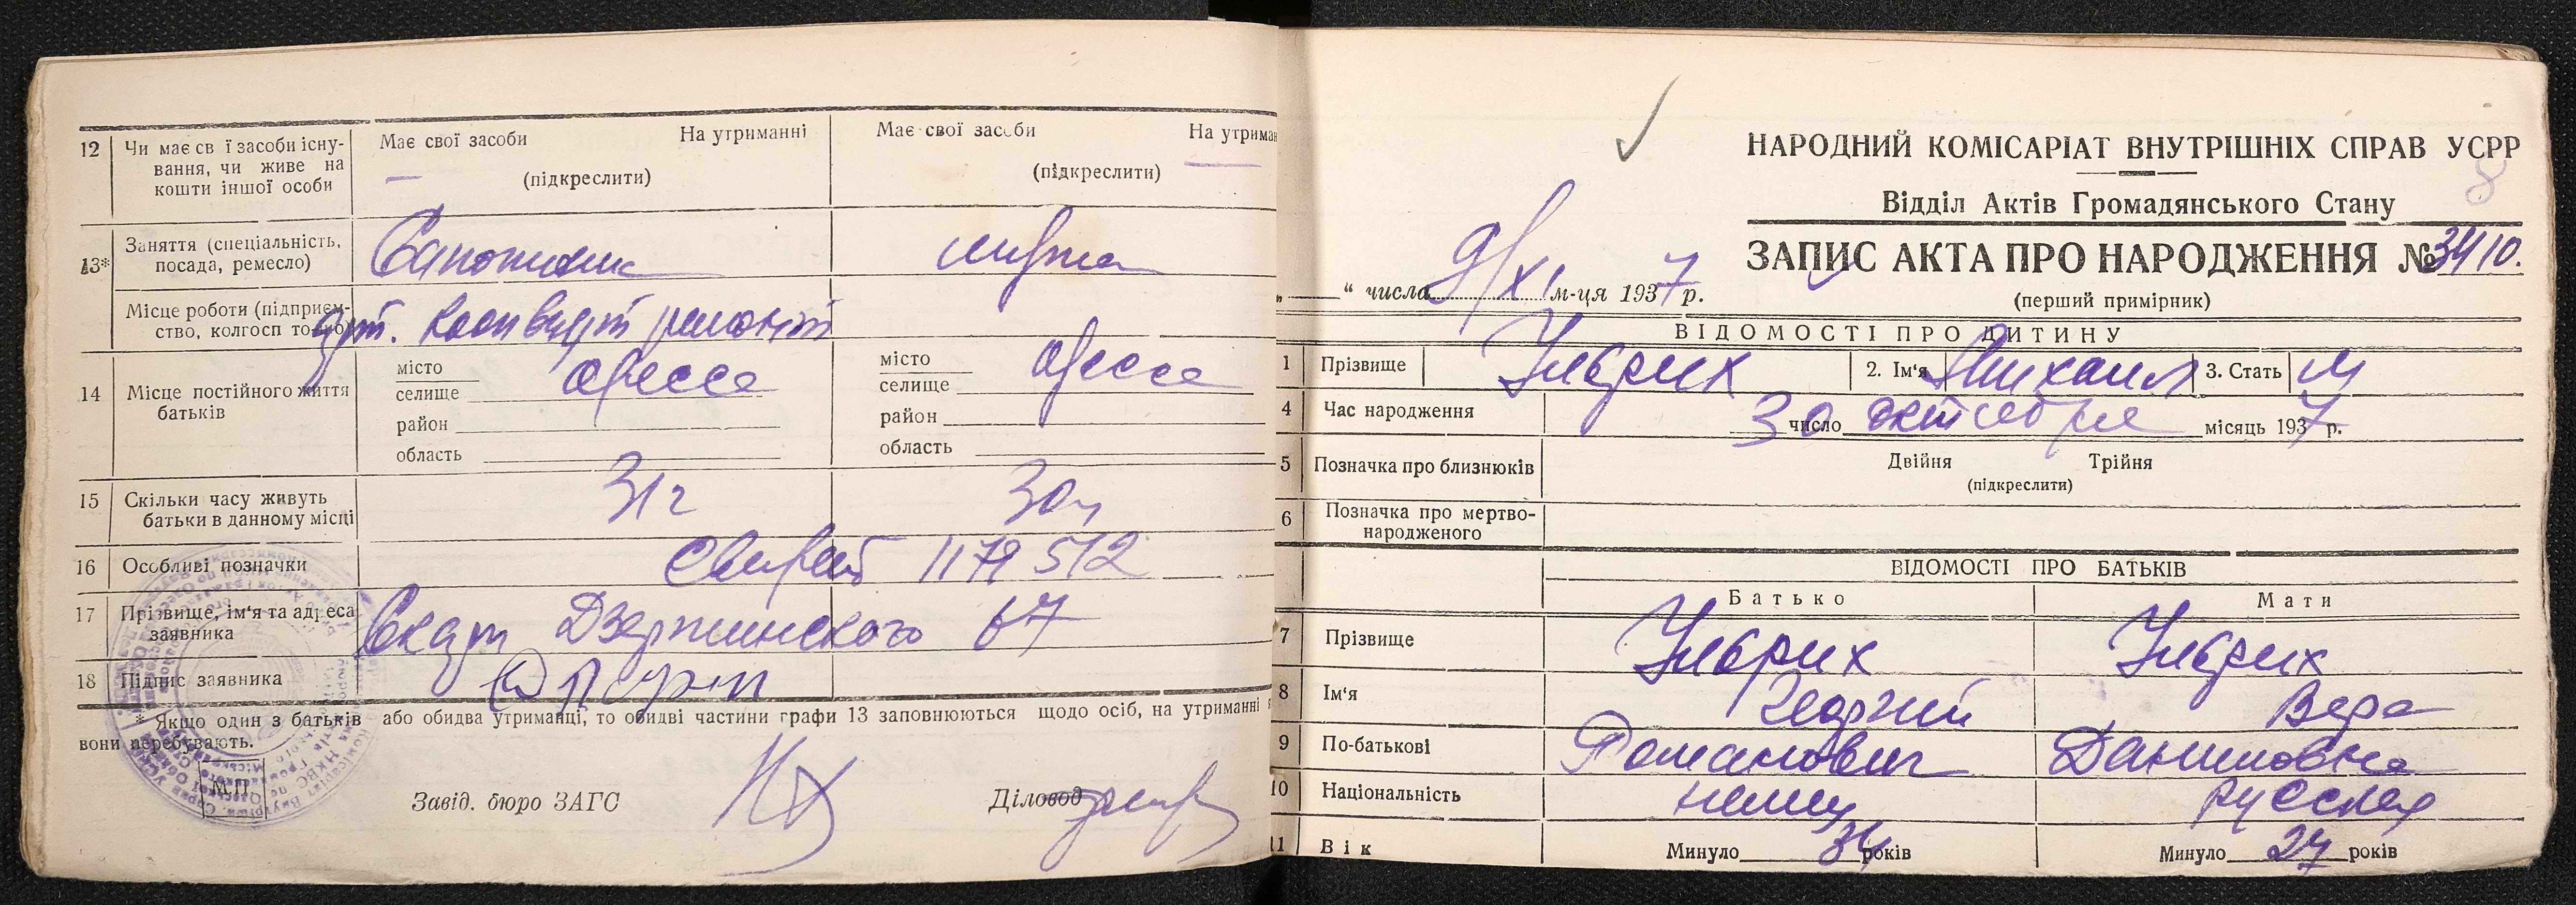 12 Чи має св ї засоби існу-
вання, чи живе на
кошти іншої особи
Має свої засоби На утриманні
(підкреслити)
Має свої засоби На утриман
(підкреслити)
13* Заняття (спеціальність,
посада, ремесло)
Сапожник
Місце роботи (підприєм-
ство, колгосп то що)
арт. ремонт
14 Місце постійного життя
батьків
місто Одесса
селище
район
область
місто Одесса
селище
район
область
15 Скільки часу живуть
батьки в данному місці
31 г
30
16 Особливі позначки
1179 512
17 Прізвище, ім'я та адреса
заявника
Дзержинского 67
18 Підпис заявника
* Якщо один з батьків або обидва утриманці, то обидві частини графи 13 заповнюються щодо осіб, на утриманні
вони перебувають.
М.П
Завід. бюро ЗАГС
Діловод
НАРОДНИЙ КОМІСАРІАТ ВНУТРІШНІХ СПРАВ УСРР
8
Відділ Актів Громадянського Стану
ЗАПИС АКТА ПРО НАРОДЖЕННЯ № 3410.
(перший примірник)
„ “ числа 9/XI м-ця 1937 р.
ВІДОМОСТІ ПРО ДИТИНУ
1 Прізвище Ульрих 2. Ім'я Михаил 3. Стать М
4 Час народження 30 число октября місяць 1937 р.
5 Позначка про близнюків Двійня Трійня
(підкреслити)
6 Позначка про мертво-
народженого
ВІДОМОСТІ ПРО БАТЬКІВ
Батько Мати
7 Прізвище Ульрих Ульрих
8 Ім'я Георгий Вера
9 По-батькові Романович Даниловна
10 Національність немец русская
11 Вік Минуло 34 років Минуло 27 років